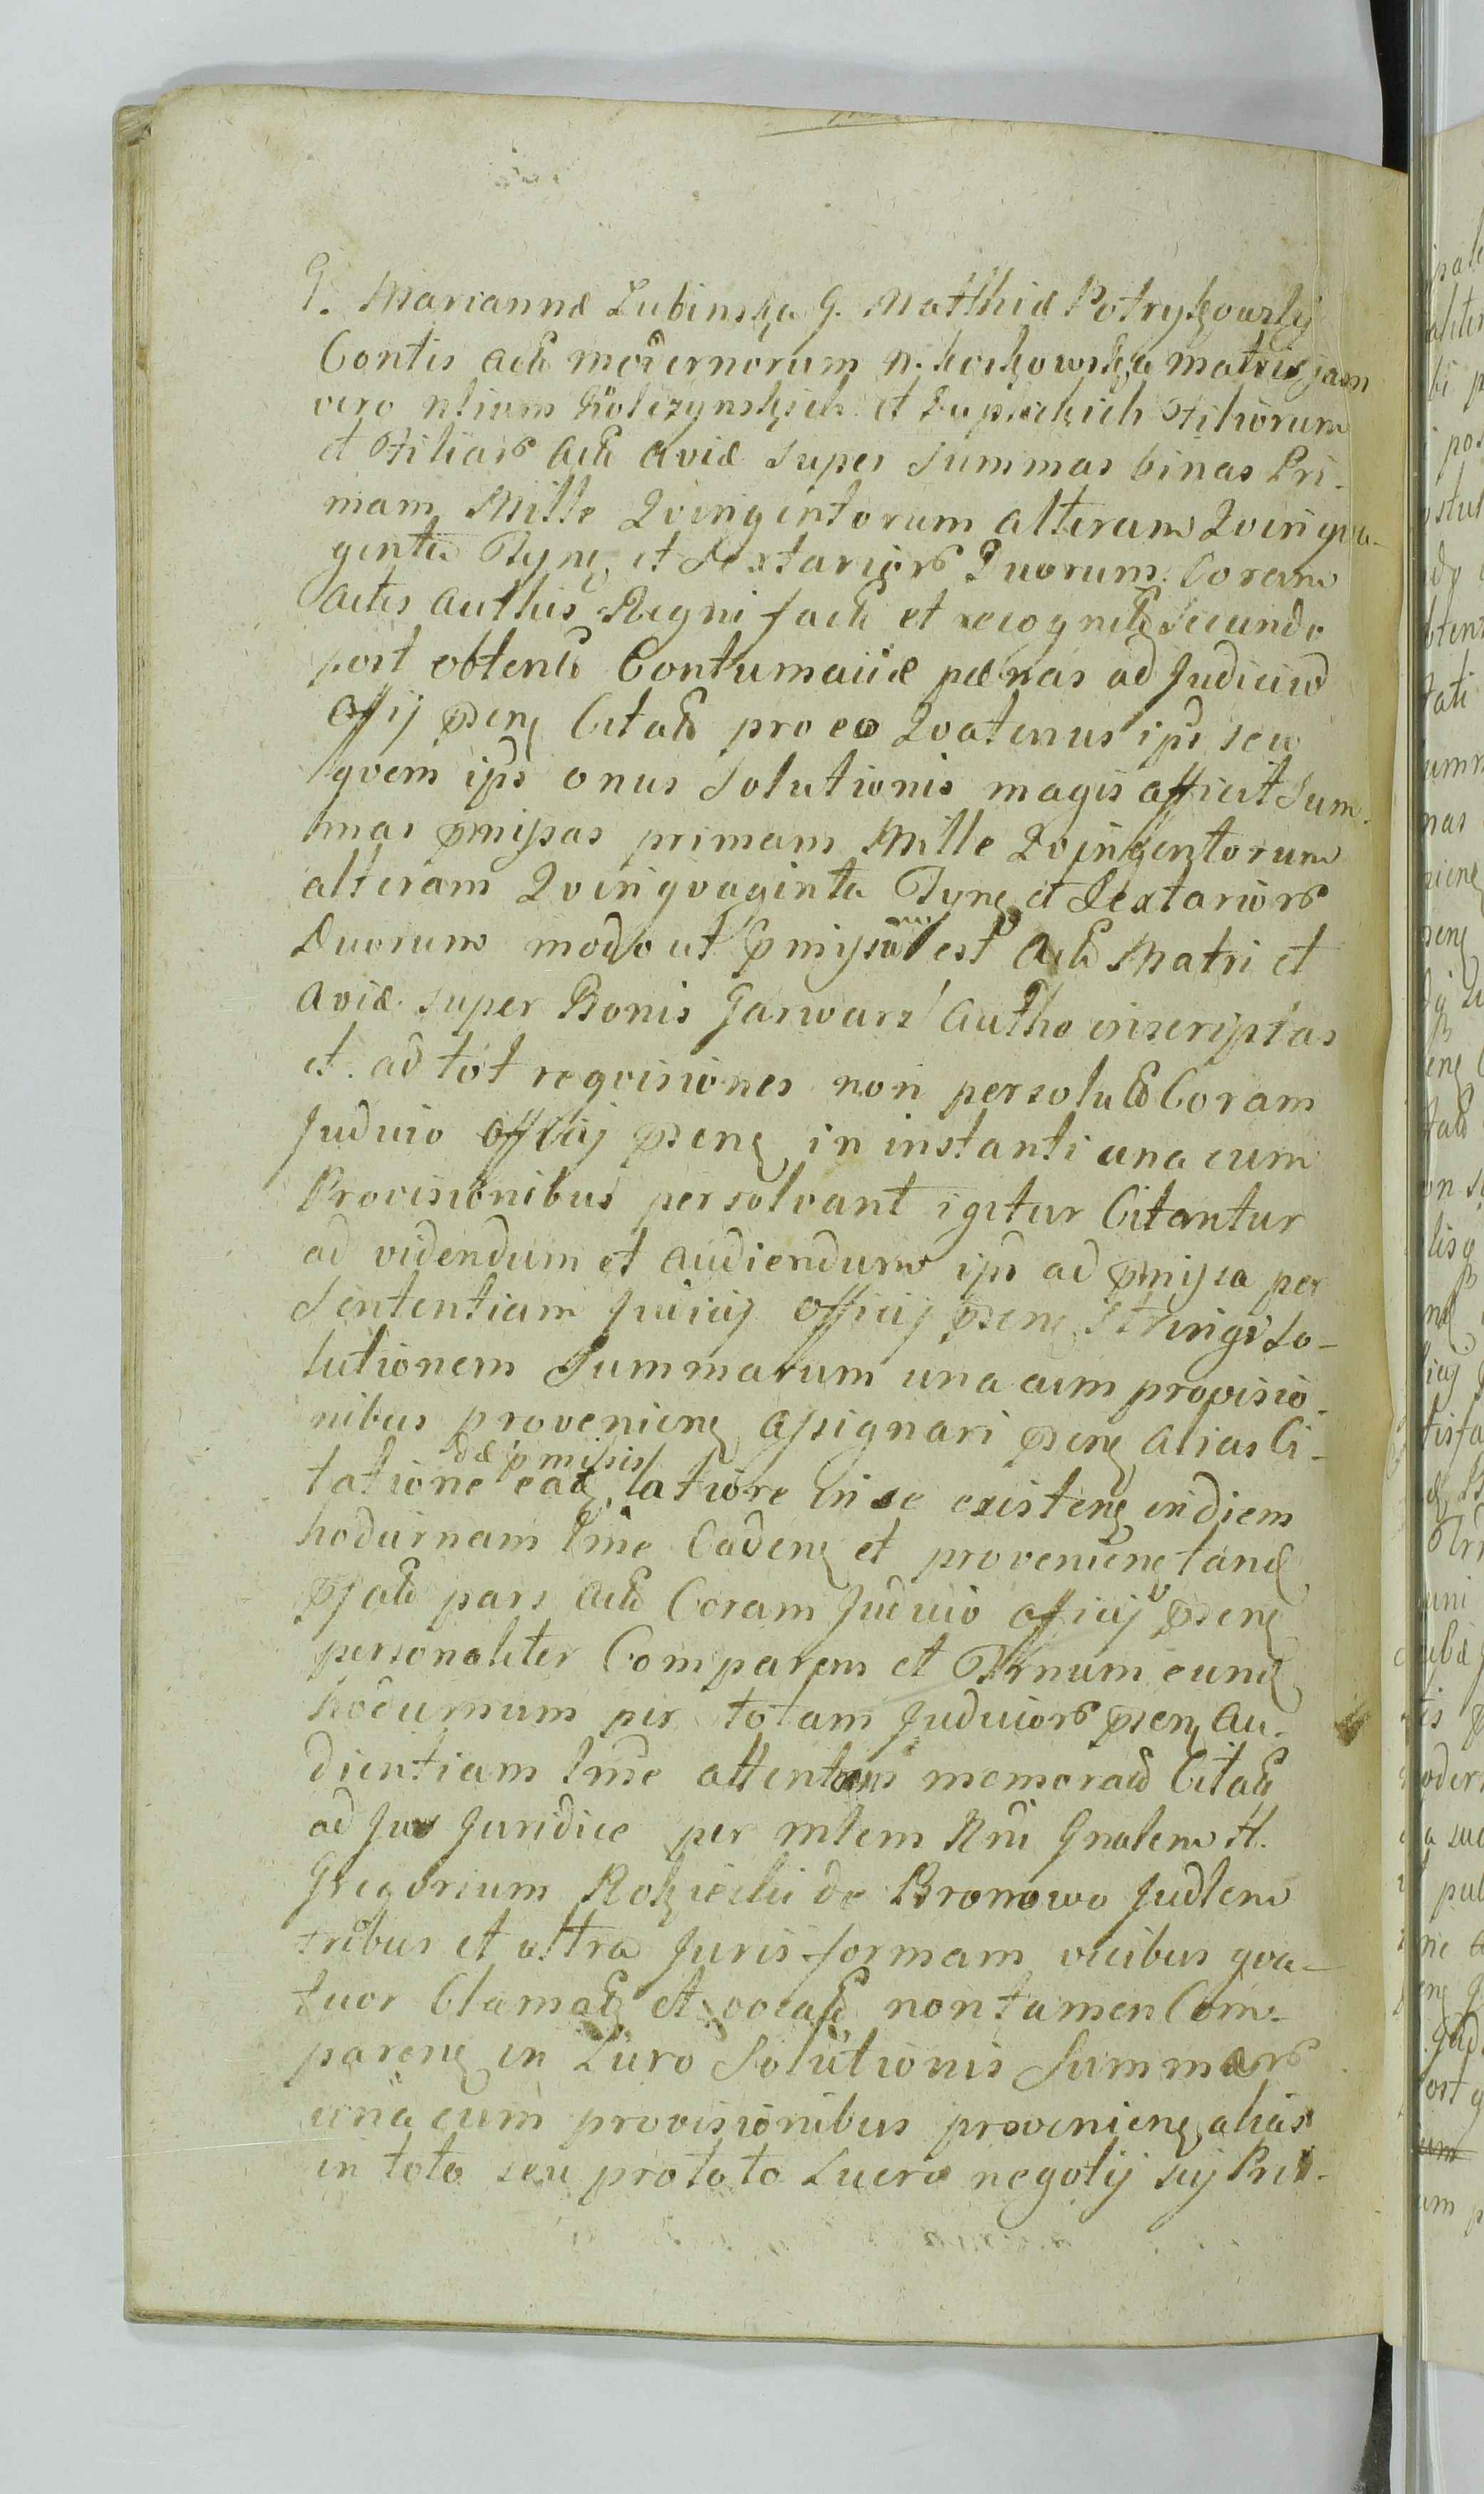 G. Mariannæ Lubinska G. Matthiæ Potrykowsky
Contis actũ modernorum N. Koskowska Matris jam
vero nlium Kolczynskich et Dupickich Filiorum
et Filiarũ actũ Aviæ super Summas binas Pri-
mam Mille Qvingintorum alteram Qvinqva-
ginta Tyne et Sextariorũ Duorum Coram
actis authis Regni factũ et recognitũ Secundo
post obtentũ Contumaciæ pænas ad Judiciũ
Offij psens Citatũ pro eo Qvatenus ipsi seu
qvem ipsi onus Solutionis magis afficit Sum-
mas pmissas primam Mille Qvingentorum
alteram Qvinqvaginta Tyne et Sextariorũ
Duorum modo ut pmissum est Actũ Matri et
Aviæ super Bonis Garwarz authe inscriptas
et ad tot reqvisiones non persolutũ Coram
Judicio Officij psens in instanti una cum
Provisionibus persolvant igitur Citantur
ad videndum et audiendum ipsi ad pmissa per
Sententiam Judicij Officij psens Stringi So-
lutionem Summarum una cum provisio-
nibus provenienẽ assignari psens alias Ci-
dæ pmissis
tatione eadẽ latiore in se existenẽ in diem
hodiernam lme Cadenẽ et provenienẽ tandẽ
pfatũ pars Actũ Coram Judicio Officij psens
personaliter Comparens et Trnum eundẽ
hodiernum per totam Judiciorũ psens Au-
dientiam lme attentans memoratũ Citatũ
ad Jus Juridice per mlem Rni Gnalem H.
Gregorium Rokicki de Bronowo Judlem
tribus et ultra Juris formam vicibus qva-
tuor Clamatũ et vocatũ non tamen Com-
parenẽ in Lucro Solutionis Summarũ
una cum provisionibus provenienẽ alias
in toto seu pro toto Lucro negotij sui Prin-